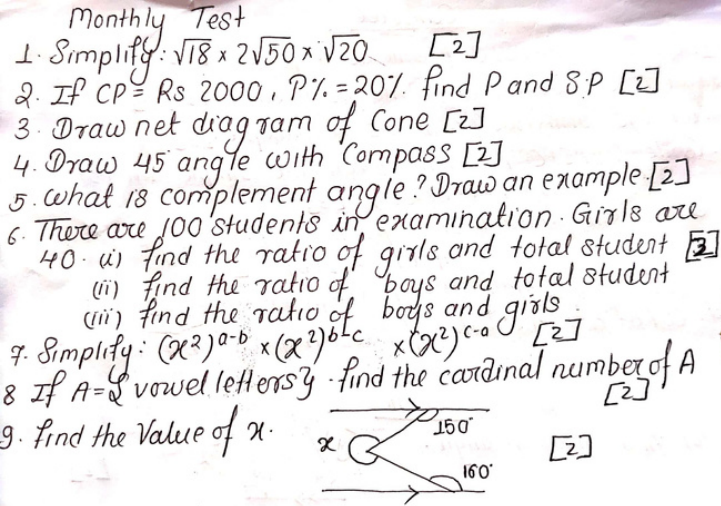 Monthly Test
1. Simplify: √18 x 2√50 x √20 [2]
2. If CP = Rs 2000, P% = 20% find P and S.P [2]
3. Draw net diagram of Cone [2]
4. Draw 45 angle with Compass [2]
5. what is complement angle? Draw an example. [2]
6. There are 100 students in examination. Girls are
40. (i) find the ratio of girls and total student [3]
(ii) find the ratio of boys and total student
(iii) find the ratio of boys and girls
7. Simplify: (x²)ᵃ⁻ᵇ x (x²)ᵇ⁻ᶜ x (x²)ᶜ⁻ᵃ [2]
8 If A = {vowel letters} . find the cardinal number of A
[2]
9. find the Value of x.
150°
x
[2]
160°